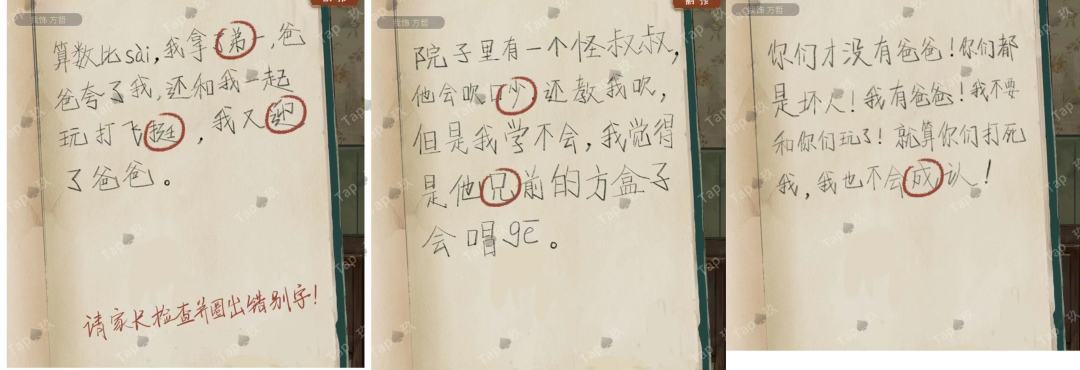 算数比sài，我拿了弟一，爸
爸夸了我，还和我一起
玩打飞挺，我又迎
了爸爸。
请家长检查并圈出错别字！
院子里有一个怪叔叔，
他会吹口少还教我吹，
但是我学不会，我觉得
是他兄前的方盒子
会唱gē。
你们才没有爸爸！你们都
是坏人！我有爸爸！我不要
和你们玩了！就算你们打死
我，我也不会成认！